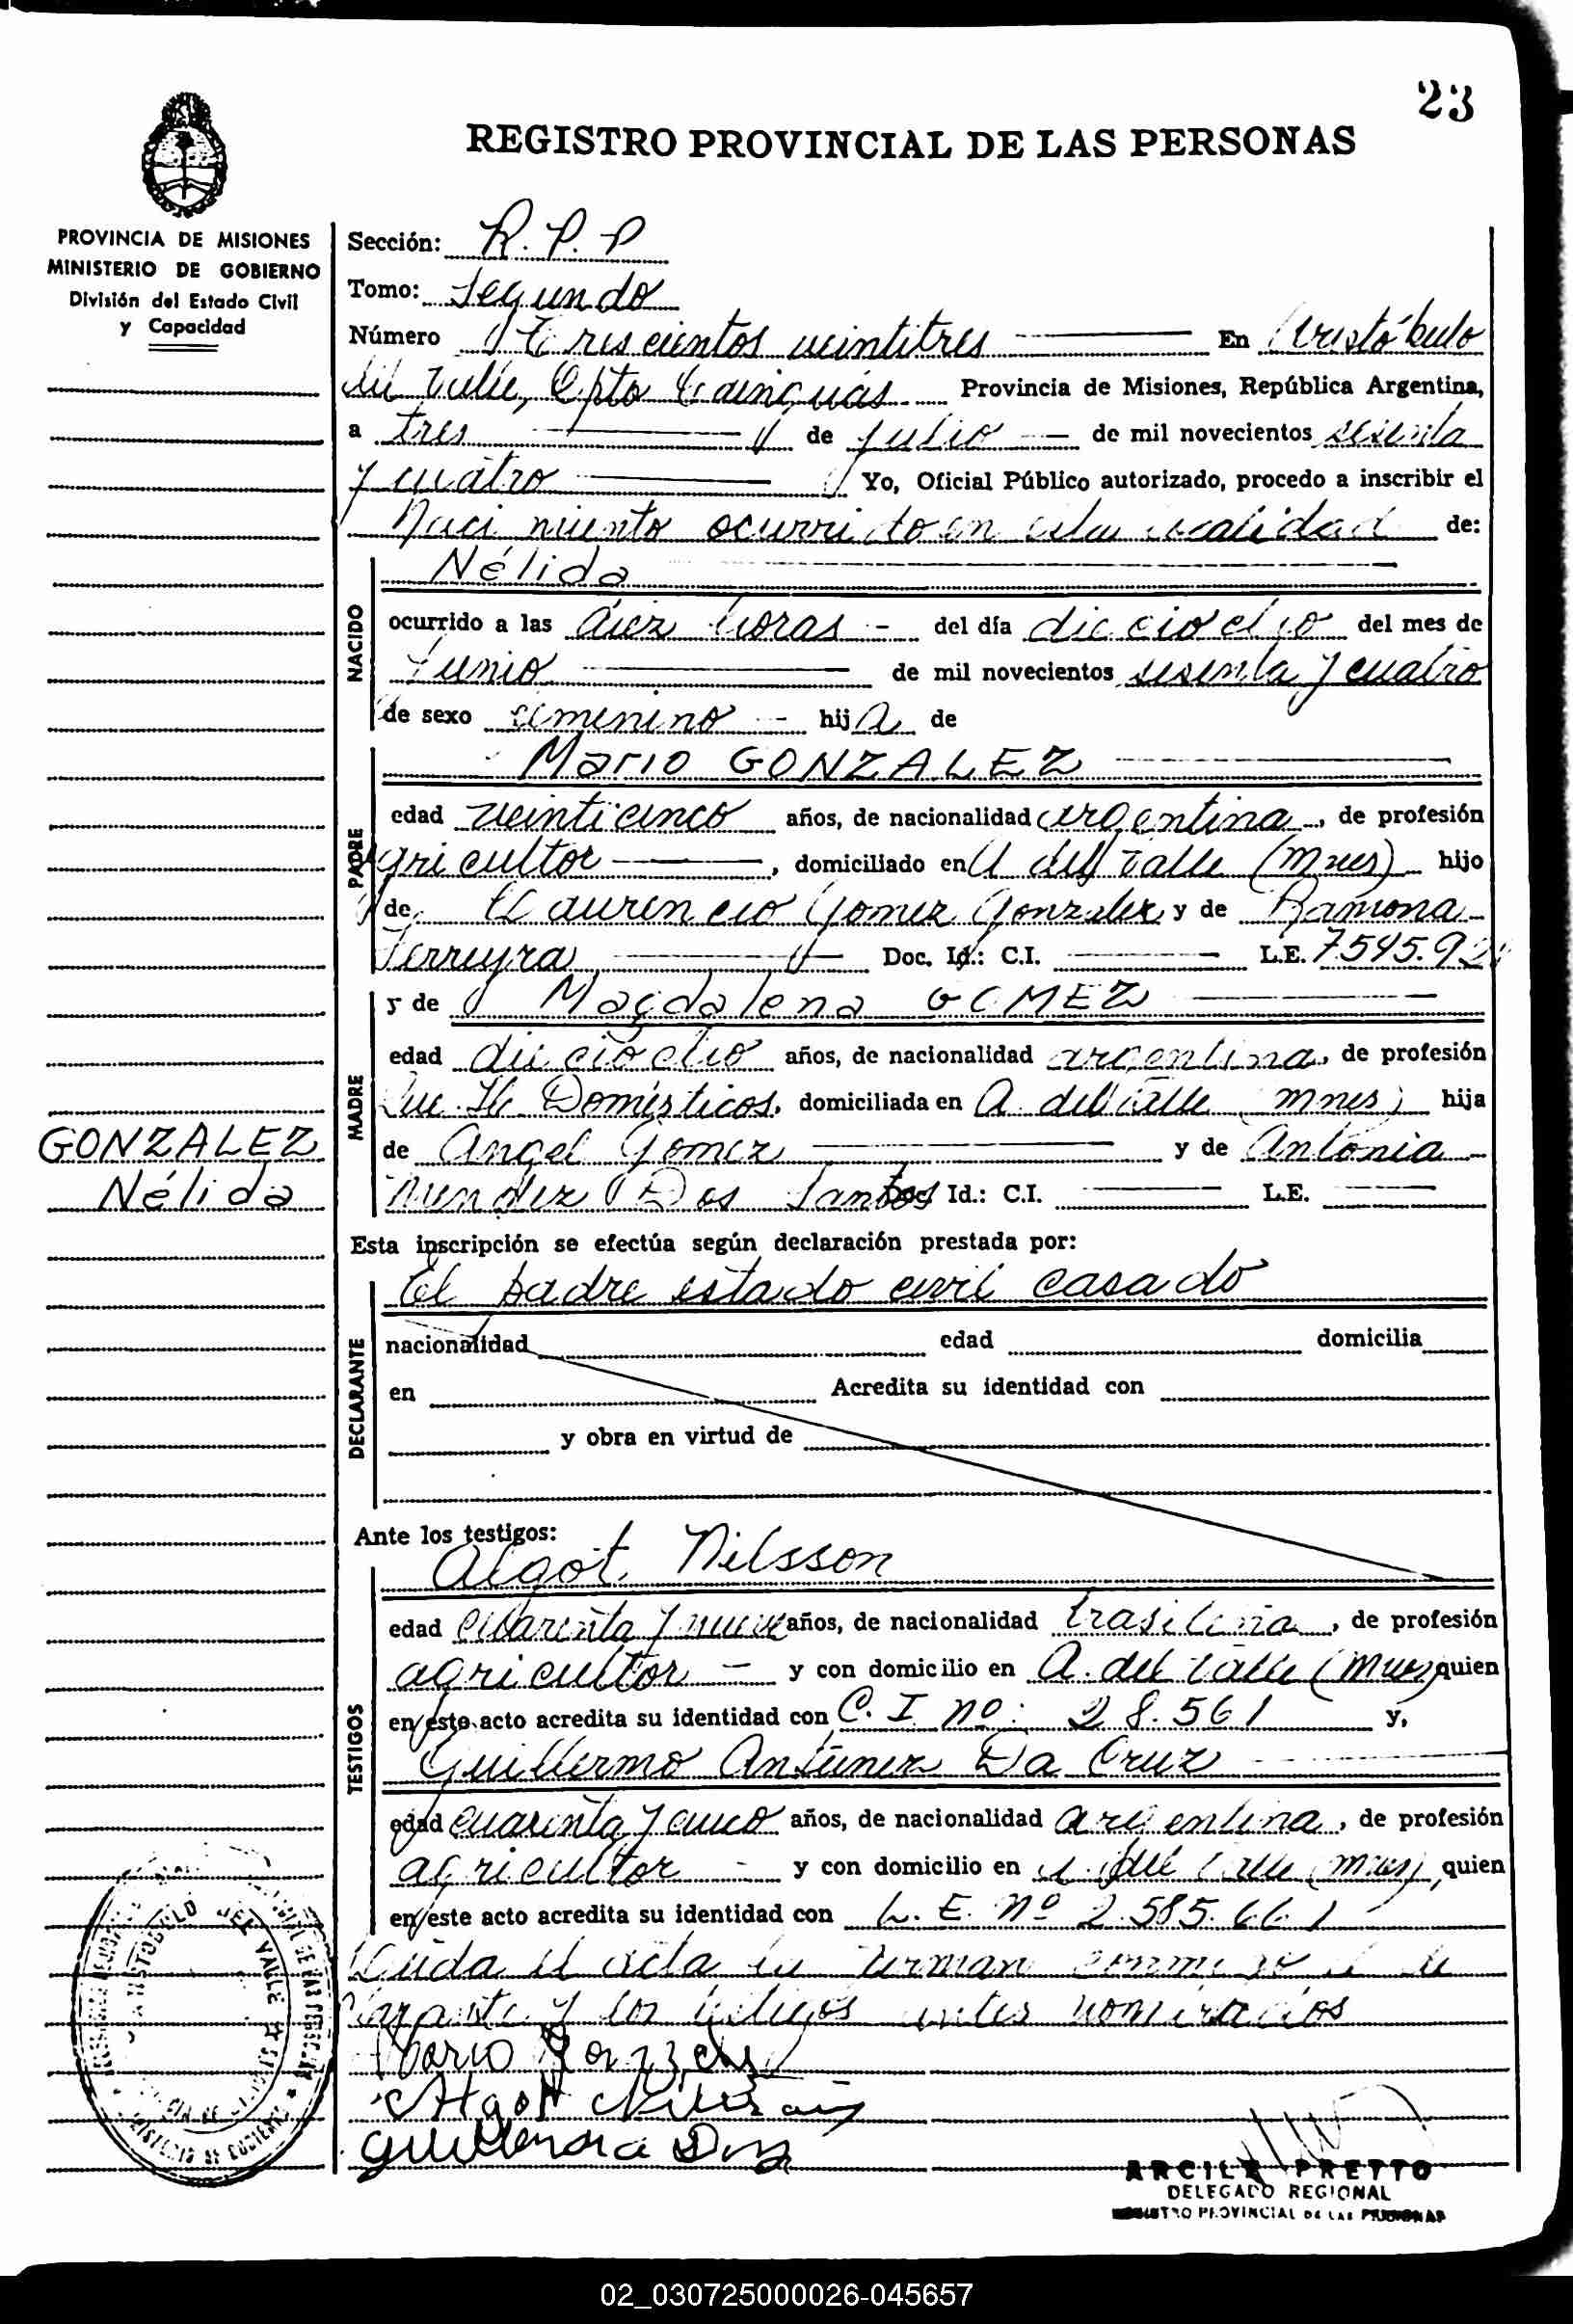 23
REGISTRO PROVINCIAL DE LAS PERSONAS
PROVINCIA DE MISIONES
MINISTERIO DE GOBIERNO
División del Estado Civil
y Capacidad
Sección: R. P. P
Tomo: Segundo
Número Trescientos veintitres En Aristóbulo
del Valle, Dpto Cainguás Provincia de Misiones, República Argentina,
a tres de Julio de mil novecientos sesenta
y cuatro Yo, Oficial Público autorizado, procedo a inscribir el
Nacimiento ocurrido en esta localidad de:
Nélida
NACIDO
ocurrido a las diez horas - del día dieciocho del mes de
Junio de mil novecientos sesenta y cuatro
de sexo femenino - hija de
Mario GONZALEZ
PADRE
edad veinticinco años, de nacionalidad argentina, de profesión
agricultor, domiciliado en A del Valle (Mnes) hijo
de Laurencio Gomez Gonzalez y de Ramona
Ferreyra Doc. Id.: C.I. L.E. 7.545.92
y de Magdalena GOMEZ
MADRE
edad dieciocho años, de nacionalidad argentina, de profesión
Que Hc Domésticos, domiciliada en A. del Valle (mnes) hija
de Angel Gomez y de Antonia
Mendez Dos Santos Doc. Id.: C.I. L.E.
GONZALEZ
Nélida
Esta inscripción se efectúa según declaración prestada por:
El padre estado civil casado
DECLARANTE
nacionalidad edad domicilia
en Acredita su identidad con
y obra en virtud de
Ante los testigos:
Algot Nilsson
TESTIGOS
edad cuarenta y nueve años, de nacionalidad brasileña, de profesión
agricultor - y con domicilio en A. del Valle (Mnes) quien
en este acto acredita su identidad con C. I. nº: 28.561 y,
Guillermo Antunez Da Cruz
edad cuarenta y cinco años, de nacionalidad argentina, de profesión
agricultor - y con domicilio en A. del Valle (mnes), quien
en este acto acredita su identidad con L. E. Nº 2.585.661
Leida el acta la firman conmigo el de
clarante y los testigos antes nominados
Mario Gonzalez
Algot Nilsson
Guillermo
ARISTOBULO DEL VALLE
MINISTERIO DE GOBIERNO
ARCILE PRETTO
DELEGADO REGIONAL
REGISTRO PROVINCIAL DE LAS PERSONAS
02_030725000026-045657